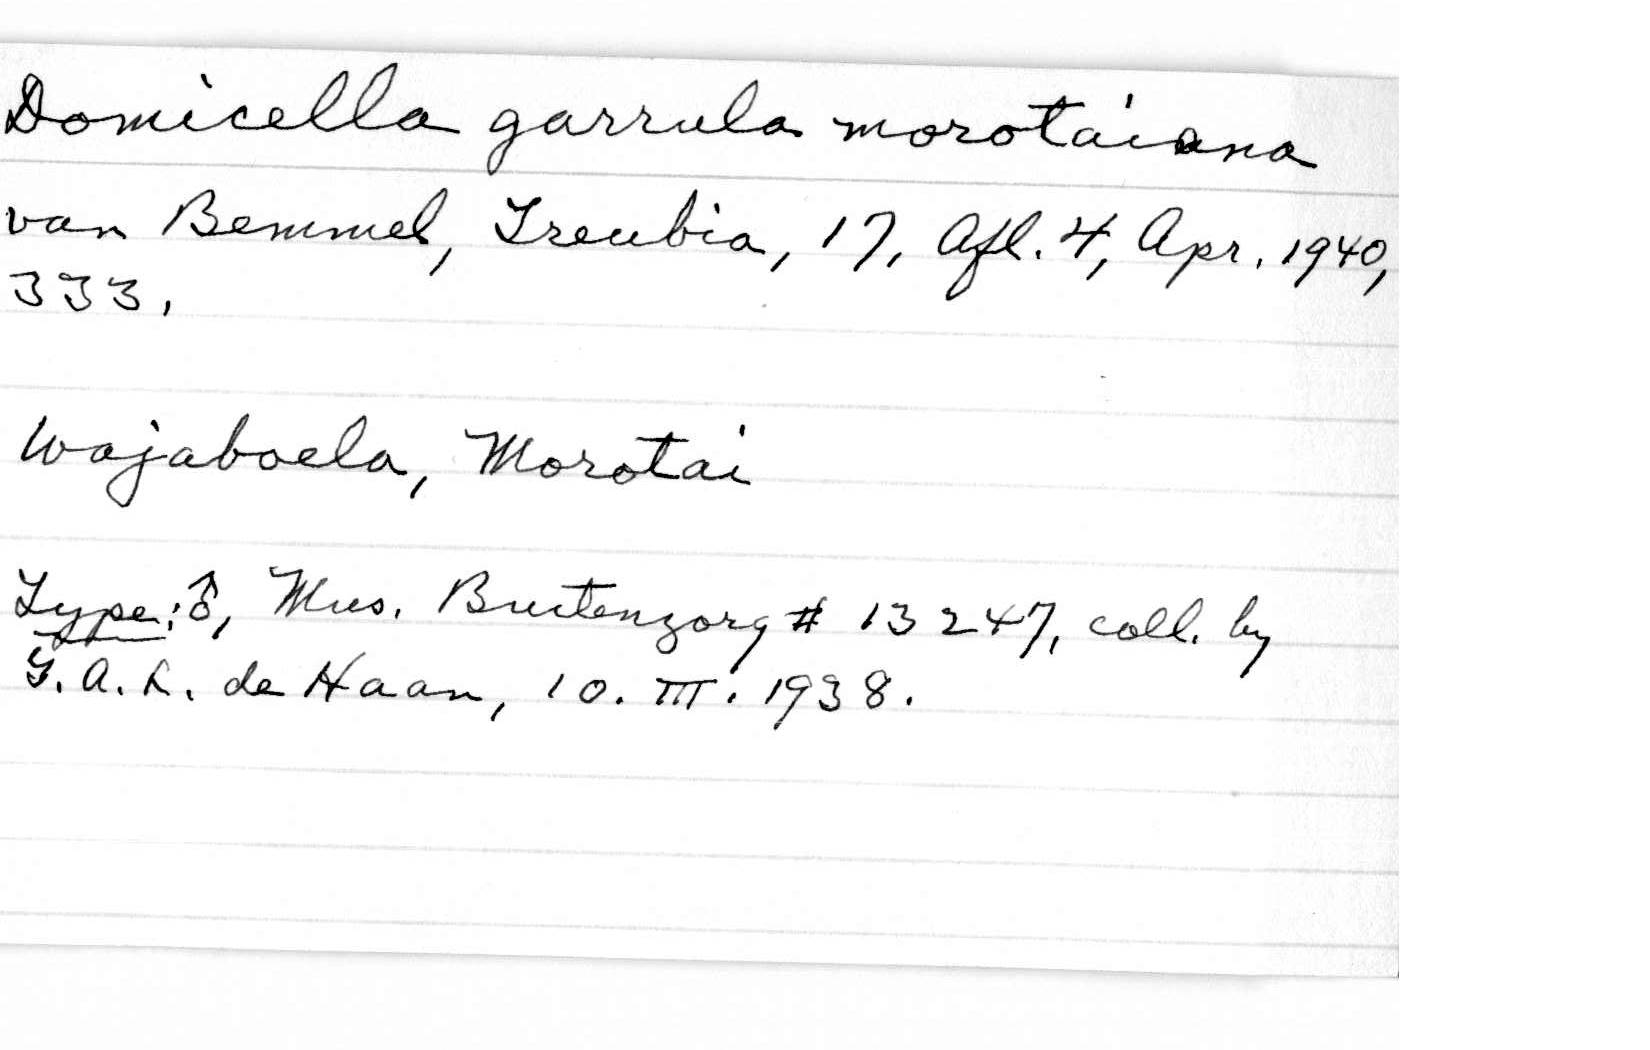 Domicella garrula morotaiana
van Bemmel, Treubia, 17, Afl. 4, Apr. 1940,
333.
Wajaboela, Morotai
Type: ♂, Mus. Buitenzorg # 13247, coll. by
G. A. L. de Haan, 10. III. 1938.